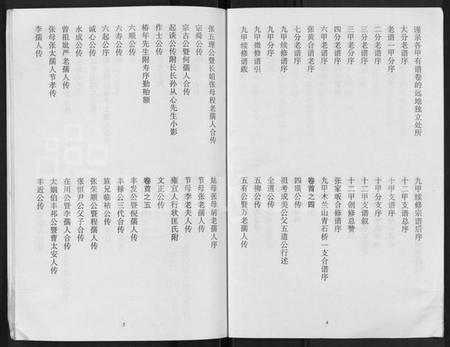 谨录各甲有谱卷的远地独立处所
大分老谱序
老谱一甲分序
二分老谱序
三分老谱序
四分老谱序
六甲老谱序
张黄合谱老序
七分老谱序
九甲续修谱序
九甲分序
九甲微修谱引
九甲续修谱跋
九甲续修宗谱后序
十二甲支谱总序
十甲支谱序
十甲分支序
十二甲支谱叙
十二甲创修总赞
张家畈合修谱序
九甲木兰山青石桥一支合谱序
卷首之四
四璜公传
祖考成美公父五道公行述
全道公传
五柳公传
五有公暨万老孺人传
4
张五理公暨长姐张母程老孺人合传
宗舜公传
宗古公暨何孺人合传
起谈公传附长长孙从心先生小影
作士公传
椿年先生附寿序勤贻额
六顺公传
六寿公传
六起公传
诚心公传
永成公传
曾祖妣严老孺人传
张母张太孺人节孝传
李孺人传
姑母张母胡老孺人序
节母张老孺人传
节母李老夫人传
雍宜人行状匡氏附
文正公传
卷首之五
丰发公暨倪孺人传
丰禄公三代合传
族兄临祜公传
张荣顺公暨程孺人传
张世尹公父子合传
在川公暨李孺人合传
大姻伯丰祁公暨曹太安人传
丰近公传
5